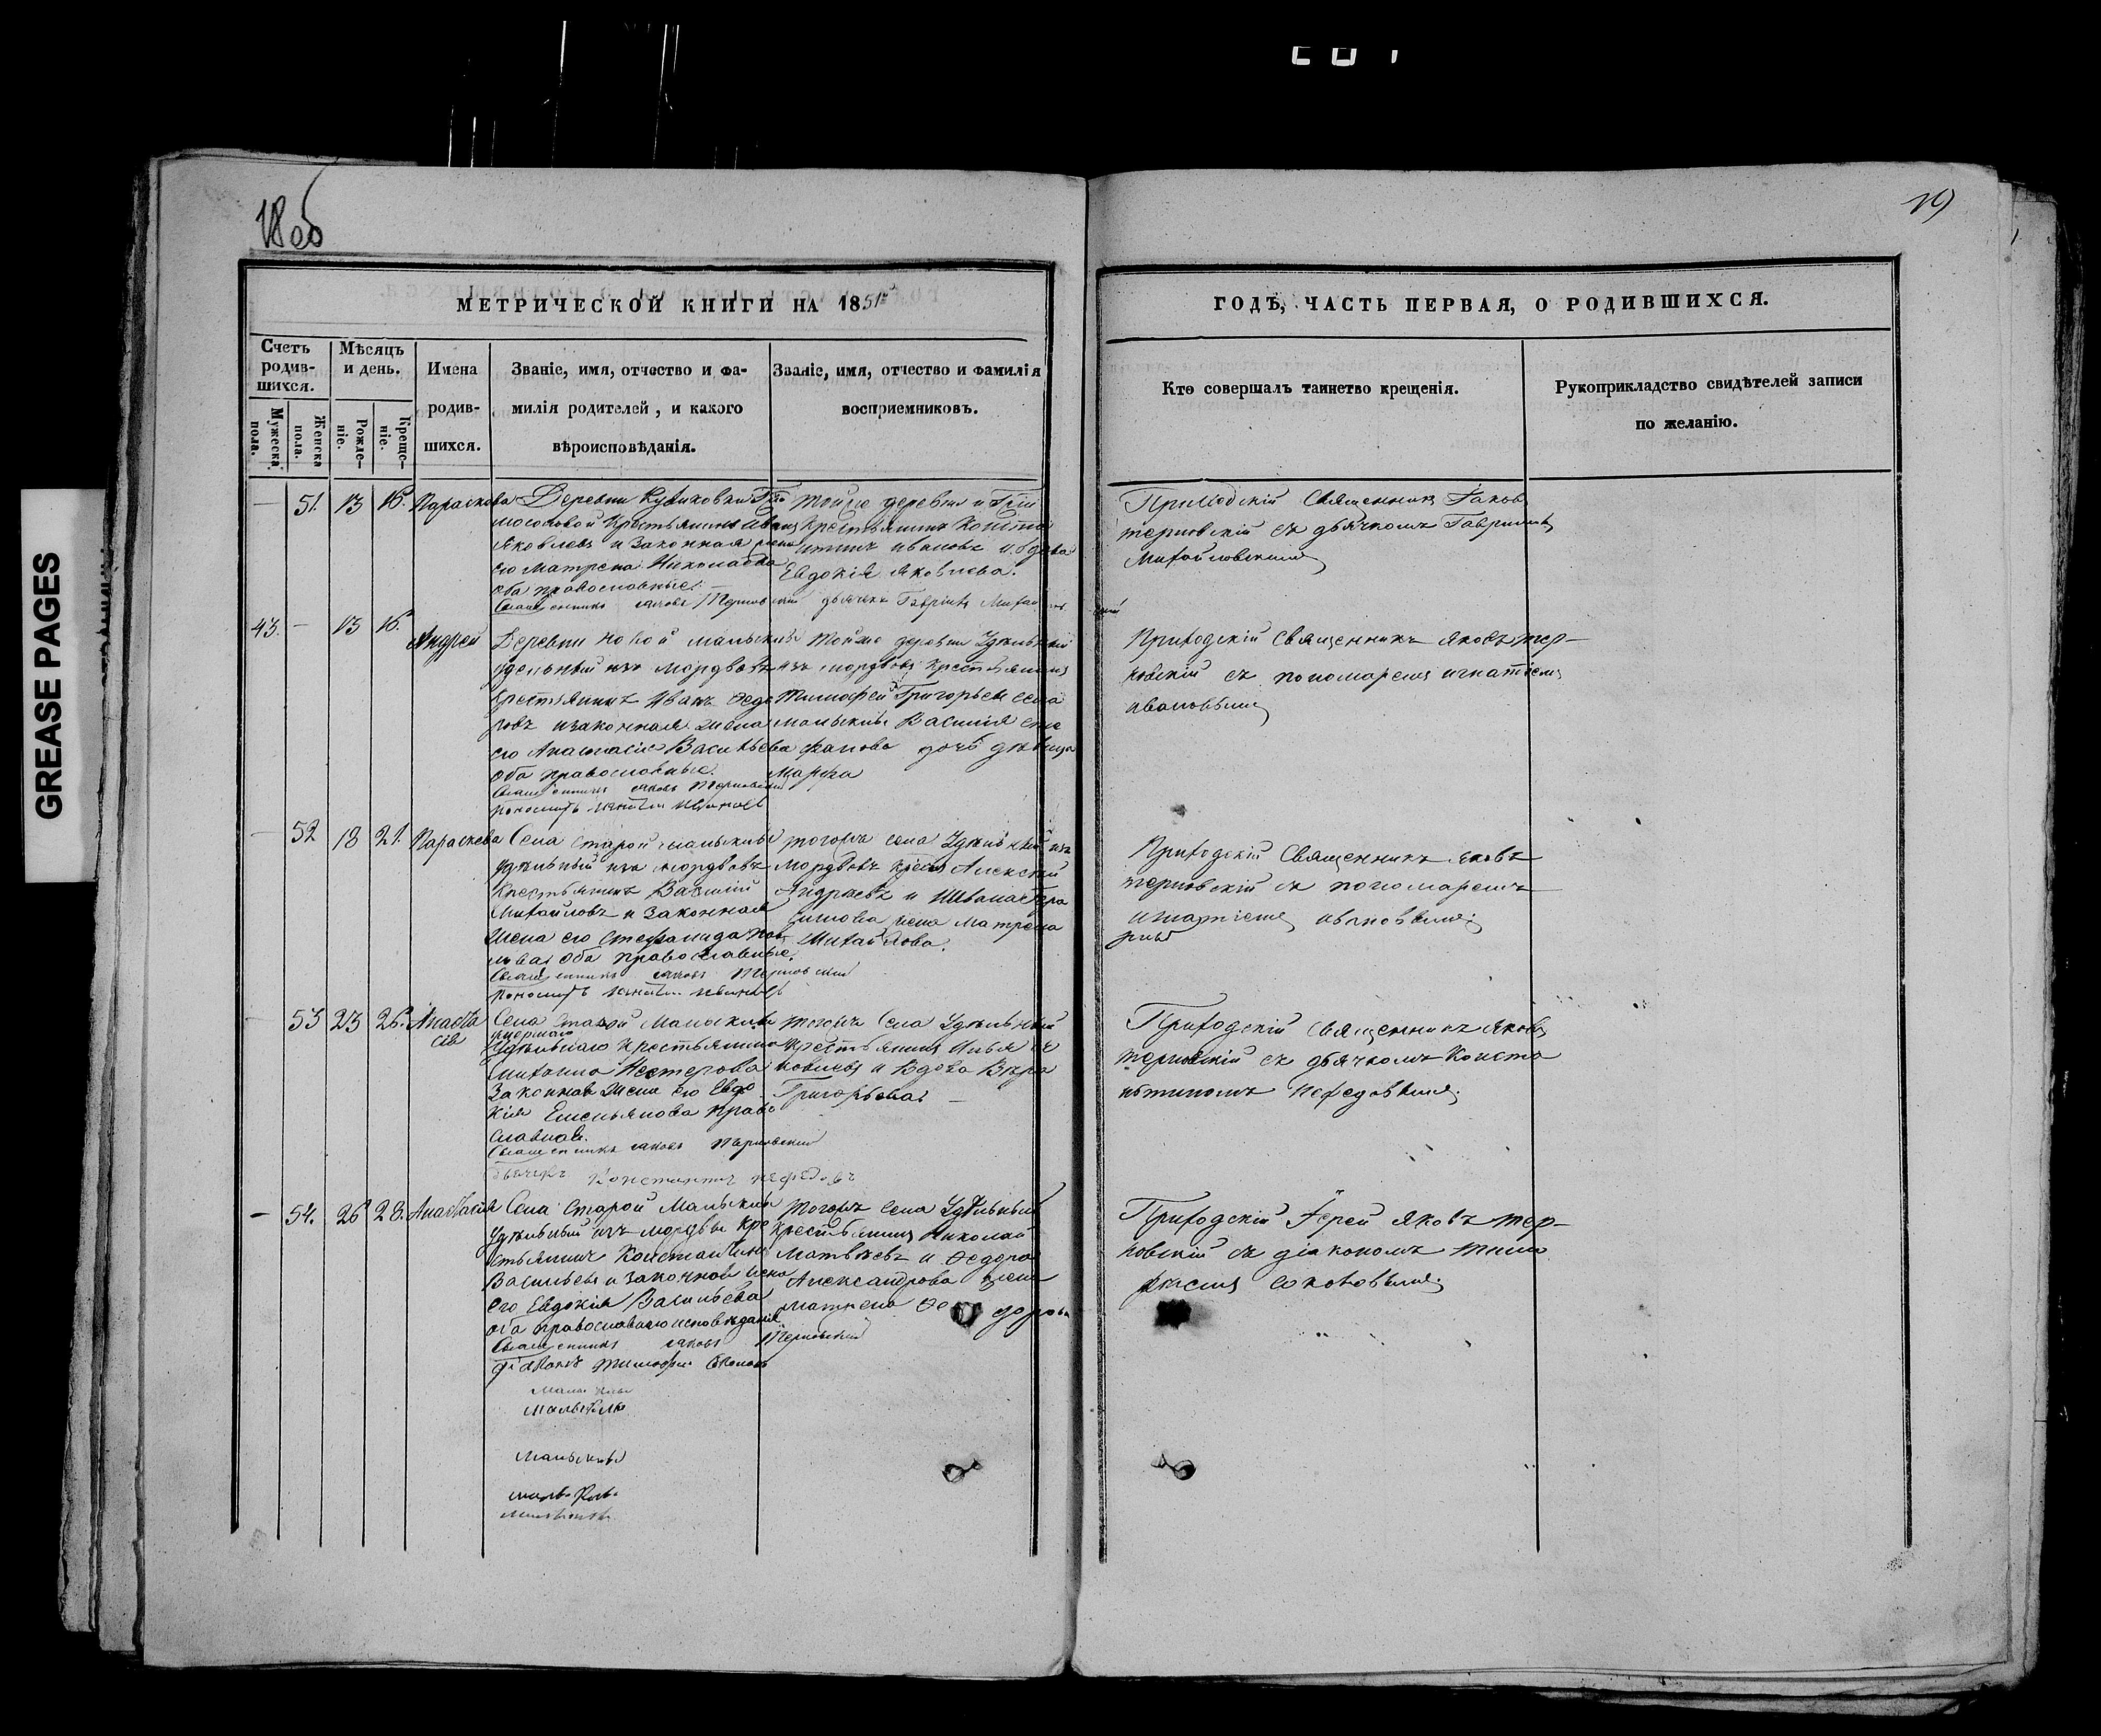 GREASE PAGES
18 об
19
МЕТРИЧЕСКОЙ КНИГИ НА 1851й
ГОДЪ, ЧАСТЬ ПЕРВАЯ, О РОДИВШИХСЯ.
Счетъ родив-шихся.
Мужеска пола.
Женска пола.
Мѣсяцъ и день.
Рожде-ніе.
Креще-ніе.
Имена
родив-
шихся.
Званіе, имя, отчество и фа-
милія родителей, и какого
вѣроисповѣданія.
Званіе, имя, отчество и фамилія
восприемниковъ.
Кто совершалъ таинство крещенія.
Рукоприкладство свидѣтелей записи
по желанію.
— 51. 13 16. Параскева
Деревни
Крестьянинъ Иванъ
Яковлевъ и законная жена
его Матрена Николаева
оба православные.
Священникъ Іаковъ Терновскій дьячекъ Гавріилъ
Тойже деревни
Крестьянинъ
Ивановъ и вдова
Евдокія Яковлева.
Приходскій Священникъ Іаковъ
Терновскій съ дьячкомъ Гавриломъ
Михайловскимъ
43. — 13 16. Андрей
Деревни Новой Малыклы
удельный изъ мордвовъ
крестьянинъ Иванъ Ѳедо
ровъ и законная жена
его Анастасія Васильева
оба православные.
Священникъ Іаковъ Терновскій
пономарь Игнатій Ивановъ
Тойже деревни Удѣльный
изъ мордвовъ крестьянинъ
Тимофей Григорьевъ села
Малыклы Василія Сте
фанова дочь дѣвица
Марѳа
Приходскій Священникъ Яковъ Тер-
новскій съ пономаремъ Игнатіемъ
Ивановымъ
— 52 18 21. Параскева
Села Старой Малыклы
удѣльный изъ мордвовъ
Крестьянинъ Василій
Михайловъ и законная
жена его Степанида Пав
лова оба православные.
Священникъ Іаковъ Терновскій
пономарь Игнатій Ивановъ
тогожъ села Удѣльный изъ
Мордвовъ Алексѣй
Андреевъ и Ивана Гера
симова жена Матрена
Михайлова.
Приходскій Священникъ Яковъ
Терновскій съ пономаремъ
Игнатіемъ Ивановымъ.
53 23 26. Анаста
сія
Села Старой Малыклы
умершаго
Удѣльнаго крестьянина
Михаила Нестерова
Законная жена его Евдо
кія Емельянова право
славная.
Священникъ Іаковъ Терновскій
Дьячекъ Константинъ Нефедовъ
тогожъ Села Удѣльный
крестьянинъ Илья
и Вдова Вѣра
Григорьева —
Приходскій Священникъ Яковъ
Терновскій съ дьячкомъ Конста
нтиномъ Нефедовымъ.
— 54. 26 28. Анастасія
Села Старой Малыклы
Удѣльный изъ мордвы кре
стьянинъ Константинъ
Васильевъ и законная жена
его Евдокія Васильева
оба православнаго исповѣданія
Священникъ Іаковъ Терновскій
діаконъ Тимофей Соколовъ
тогожъ Села Удѣльный
крестьянинъ Николай
Матвѣевъ и Ѳедора
Александрова жена
Матрена Ѳе дорова
Приходскій Іерей Яковъ Тер-
новскій съ діакономъ Тимо
феемъ Соколовымъ.
Малыклы
Малыклы
Малыклы